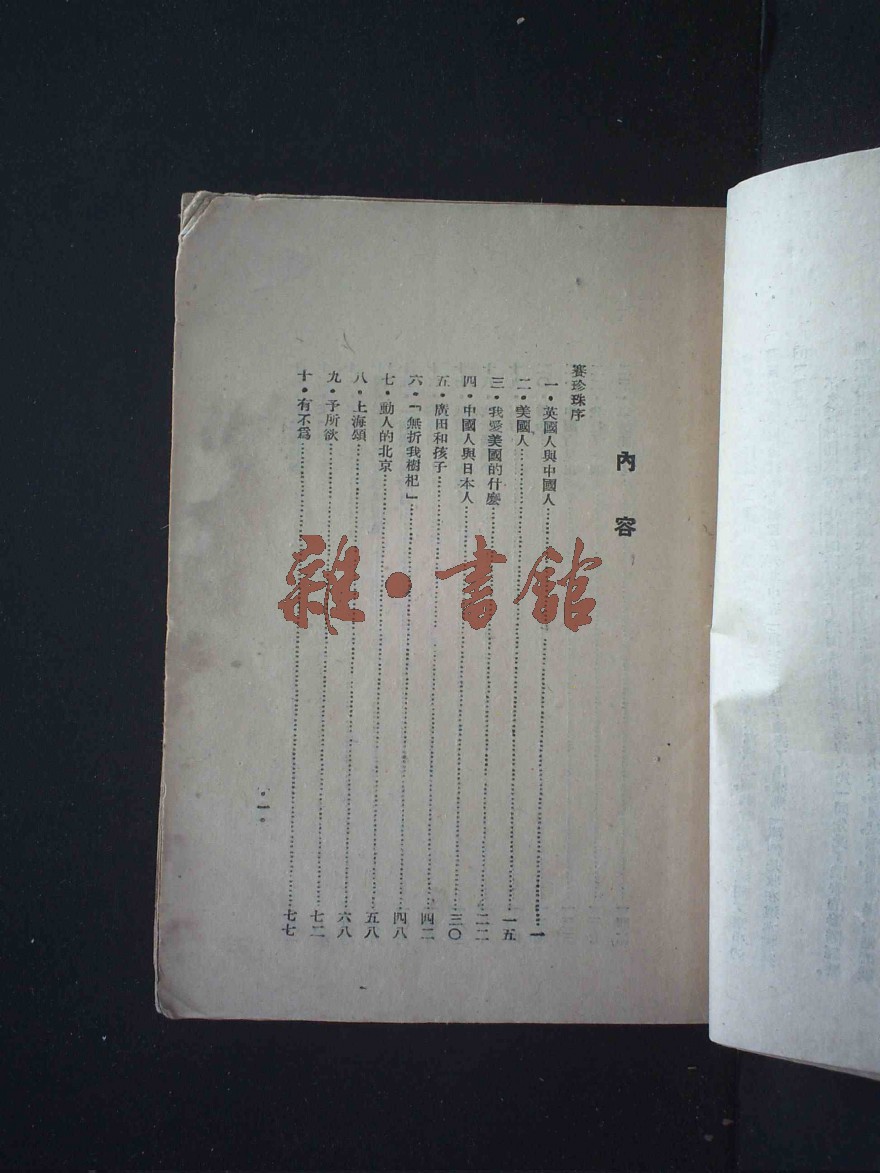 內容
賽珍珠序
一・英國人與中國人……一
二・美國人……一五
三・我愛美國的什麼……二二
四・中國人與日本人……三〇
五・廣田和孩子……四二
六・「無折我樹杞」……四八
七・動人的北京……五八
八・上海頌……六八
九・予所欲……七二
十・有不為……七七
・一・
雜・書館